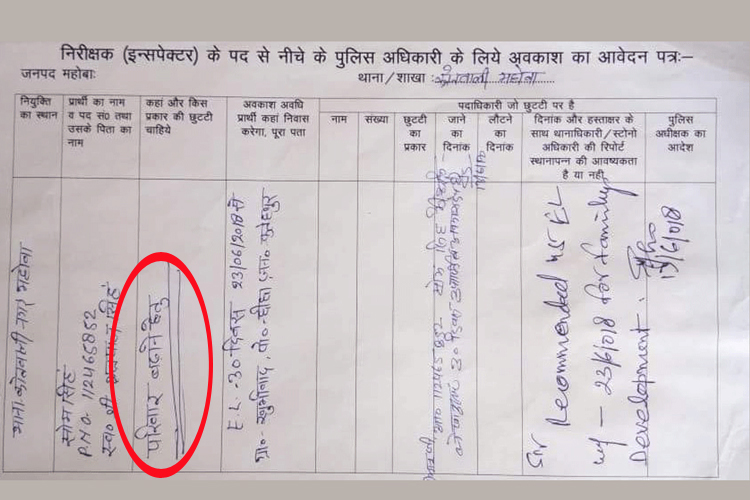 निरीक्षक (इन्सपेक्टर) के पद से नीचे के पुलिस अधिकारी के लिये अवकाश का आवेदन पत्रः–
जनपद महोबाः
थाना/शाखा :कोतवाली महोबा
नियुक्ति का स्थान
प्रार्थी का नाम व पद सं0 तथा उसके पिता का नाम
कहां और किस प्रकार की छुटटी चाहिये
अवकाश अवधि प्रार्थी कहां निवास करेगा, पूरा पता
पदाधिकारी जो छुटटी पर है
नाम
संख्या
छुटटी का प्रकार
जाने का दिनांक
लौटने का दिनांक
दिनांक और हस्ताक्षर के साथ थानाधिकारी/स्टोनो अधिकारी की रिपोर्ट स्थानापन्न की आवष्यकता है या नही
पुलिस अधीक्षक का आदेश
थाना कोतवाली नगर महोबा
सोम सिंह
P.N.O. 112465852
परिवार बढ़ाने हेतु
E.L. -30 दिवस 23/06/2018 से
Sir Recommended 45 EL
wef – 23/6/018 for family
Development.